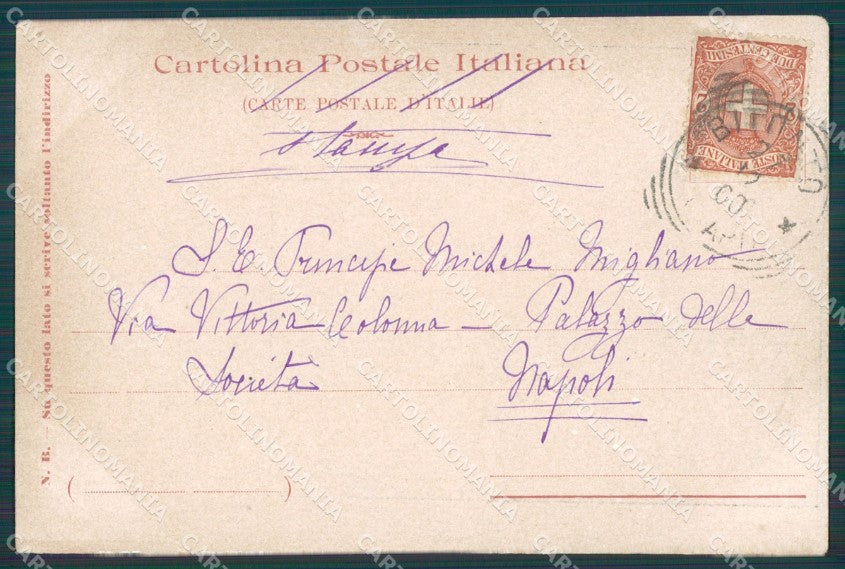 Cartolina Postale Italiana
(CARTE POSTALE D'ITALIE)
Stampa
POSTE ITALIANE
DUE CENTESIMI
2
2
S. E. Principe Michele Migliano
Via Vittoria Colonna – Palazzo della
Società Napoli
N. B. – Su questo lato si scrive soltanto l'indirizzo
CARTOLINOMANIA